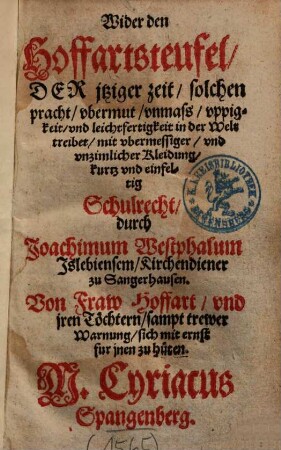 Wider den
Hoffartsteufel/
DER jtziger zeit/ solchen
pracht/ vbermut/ vnmass/ vppig-
keit/ vnd leichtfertigkeit in der Welt
treibet/ mit vbermessiger/ vnd
vnzimlicher Kleidung/
kurtz vnd einfel-
tig
Schulrecht/
durch
Joachimum Westphalum
Jslebiensem/ Kirchendiener
zu Sangerhausen.
Von Fraw Hoffart/ vnd
jren Töchtern/ sampt trewer
Warnung/ sich mit ernst
fur jnen zu hüten.
M. Cyriacus
Spangenberg.
(1565)
KREISBIBLIOTHEK
REGENSBURG